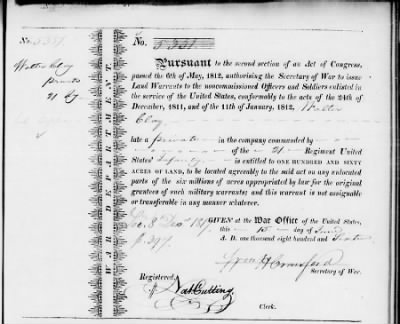 No. 5331
No. 5331
Walter Clay
private
21 Reg.
WAR DEPARTMENT.
Pursuant to the second section of an Act of Congress,
passed the 6th of May, 1812, authorising the Secretary of War to issue
Land Warrants to the noncommissioned Officers and Soldiers enlisted in
the service of the United States, conformably to the acts of the 24th of
December, 1811, and of the 11th of January, 1812, Walter
Clay
late a private in the company commanded by
of the 21 Regiment United
States' Infantry is entitled to ONE HUNDRED AND SIXTY
ACRES OF LAND, to be located agreeably to the said act on any unlocated
parts of the six millions of acres appropriated by law for the original
grantees of such military warrants; and this warrant is not assignable
or transferable in any manner whatever.
8 Decr 1817
GIVEN at the War Office of the United States,
this 15 day of
A. D. one thousand eight hundred and
Wm H Crawford
Secretary of War.
Registered,
Nat Cutting
Clerk.